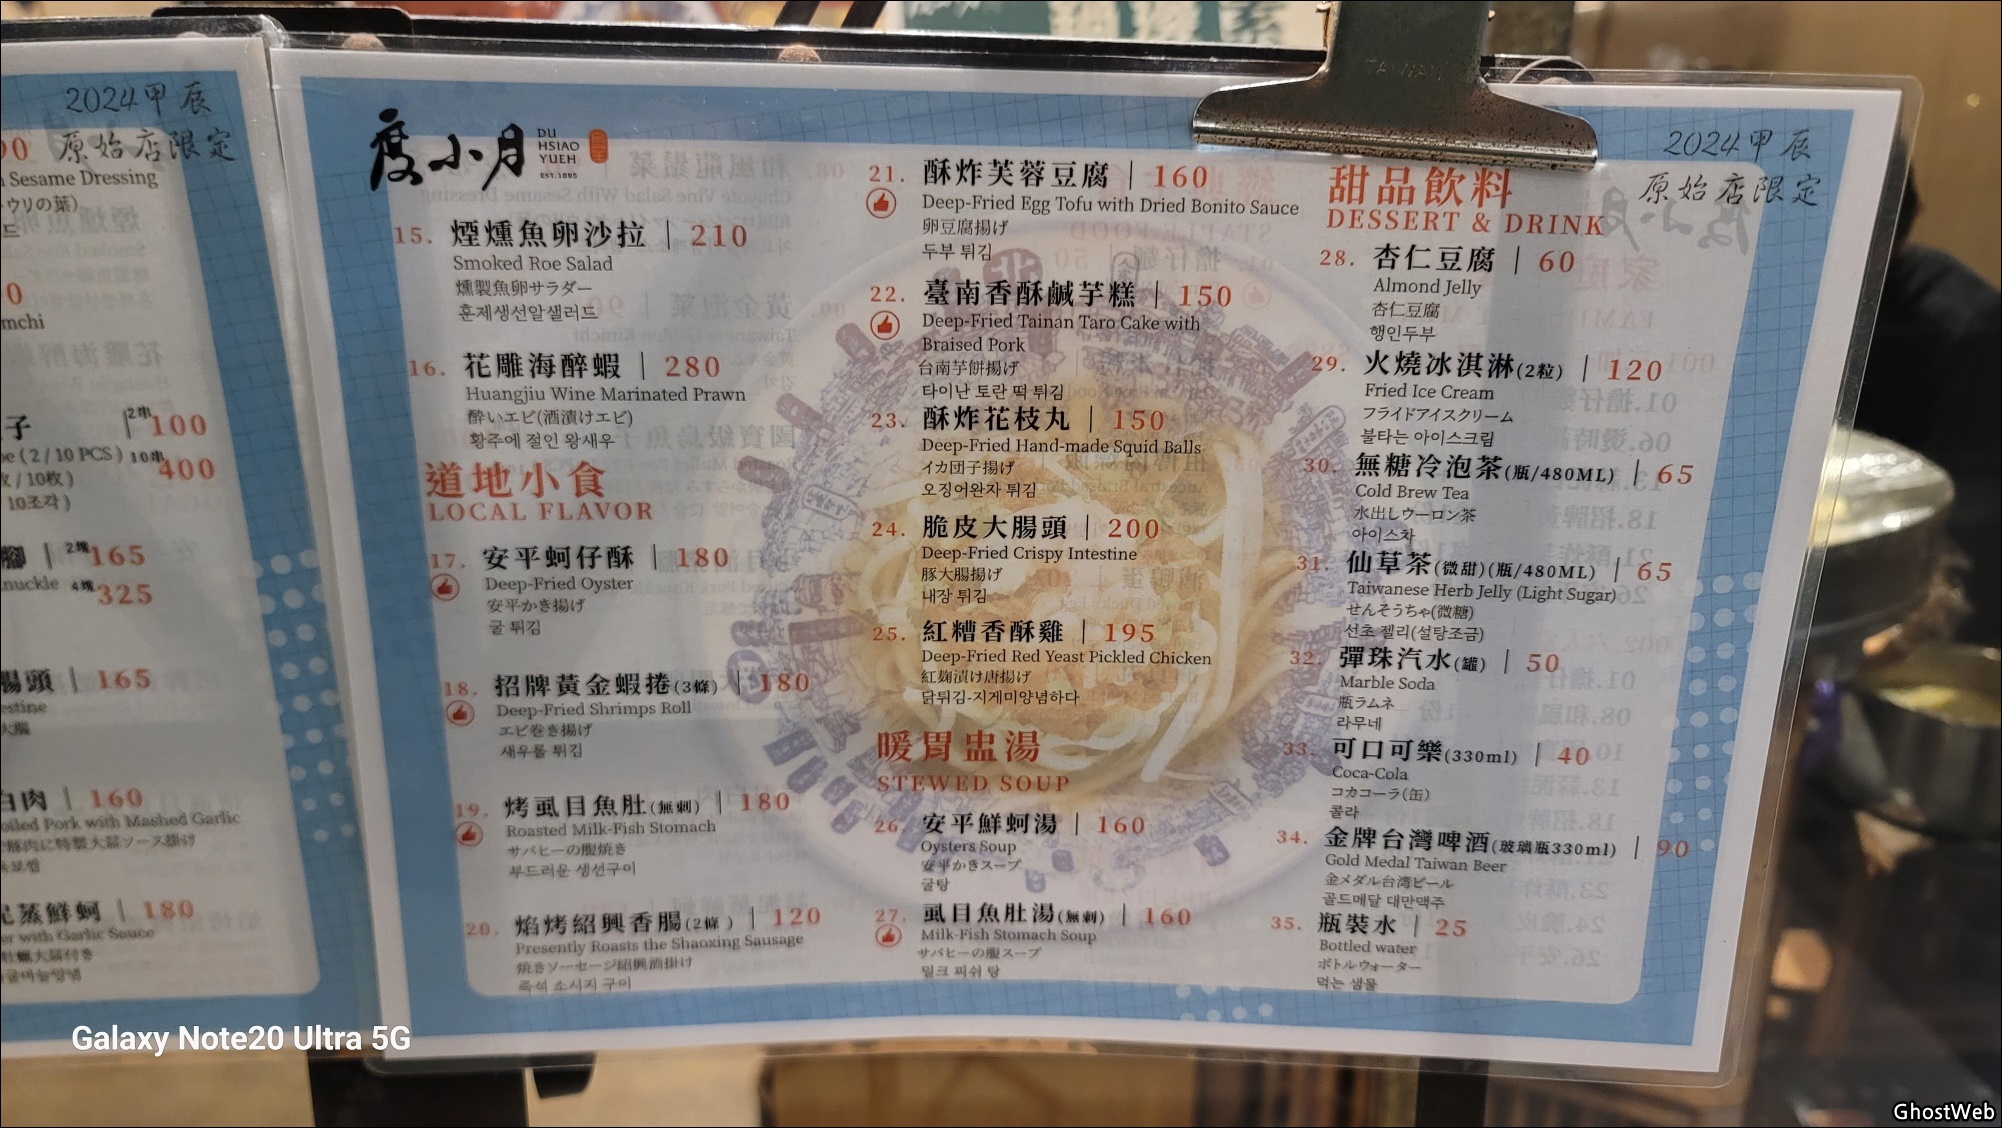 2024甲辰
原始店限定
Sesame Dressing
ウリの葉)
mchi
子 |2串100
(2/10 PCS) 10串400
/10枚)
10조각)
腳 | 2塊165
nuckle 4塊325
腸頭 | 165
estine
大腸
白肉 | 160
oiled Pork with Mashed Garlic
蒸鮮蚵 | 180
er with Garlic Sauce
度小月
DU
HSIAO
YUEH
EST.1895
15. 煙燻魚卵沙拉 | 210
Smoked Roe Salad
燻製魚卵サラダー
훈제생선알샐러드
16. 花雕海醉蝦 | 280
Huangjiu Wine Marinated Prawn
酔いエビ(酒漬けエビ)
황주에 절인 왕새우
道地小食
LOCAL FLAVOR
17. 安平蚵仔酥 | 180
Deep-Fried Oyster
安平かき揚げ
굴 튀김
18. 招牌黃金蝦捲(3條) | 180
Deep-Fried Shrimps Roll
エビ巻き揚げ
새우롤 튀김
19. 烤虱目魚肚(無刺) | 180
Roasted Milk-Fish Stomach
サバヒーの腹焼き
부드러운 생선구이
20. 焰烤紹興香腸(2條) | 120
Presently Roasts the Shaoxing Sausage
焼きソーセージ紹興酒掛け
즉석 소시지 구이
21. 酥炸芙蓉豆腐 | 160
Deep-Fried Egg Tofu with Dried Bonito Sauce
卵豆腐揚げ
두부 튀김
22. 臺南香酥鹹芋糕 | 150
Deep-Fried Tainan Taro Cake with
Braised Pork
台南芋餅揚げ
타이난 토란 떡 튀김
23. 酥炸花枝丸 | 150
Deep-Fried Hand-made Squid Balls
イカ団子揚げ
오징어완자 튀김
24. 脆皮大腸頭 | 200
Deep-Fried Crispy Intestine
豚大腸揚げ
내장 튀김
25. 紅糟香酥雞 | 195
Deep-Fried Red Yeast Pickled Chicken
紅麹漬け唐揚げ
닭튀김-지게미양념하다
暖胃盅湯
STEWED SOUP
26. 安平鮮蚵湯 | 160
Oysters Soup
安平かきスープ
굴탕
27. 虱目魚肚湯(無刺) | 160
Milk-Fish Stomach Soup
サバヒーの腹スープ
밀크 피쉬 탕
2024甲辰
原始店限定
甜品飲料
DESSERT & DRINK
28. 杏仁豆腐 | 60
Almond Jelly
杏仁豆腐
행인두부
29. 火燒冰淇淋(2粒) | 120
Fried Ice Cream
フライドアイスクリーム
불타는 아이스크림
30. 無糖冷泡茶(瓶/480ML) | 65
Cold Brew Tea
水出しウーロン茶
아이스차
31. 仙草茶(微甜)(瓶/480ML) | 65
Taiwanese Herb Jelly (Light Sugar)
せんそうちゃ(微糖)
선초 젤리(설탕조금)
32. 彈珠汽水(罐) | 50
Marble Soda
瓶ラムネ
라무네
33. 可口可樂(330ml) | 40
Coca-Cola
コカコーラ(缶)
콜라
34. 金牌台灣啤酒(玻璃瓶330ml) | 90
Gold Medal Taiwan Beer
金メダル台湾ビール
골드메달 대만맥주
35. 瓶裝水 | 25
Bottled water
ボトルウォーター
먹는 샘물
Galaxy Note20 Ultra 5G
GhostWeb